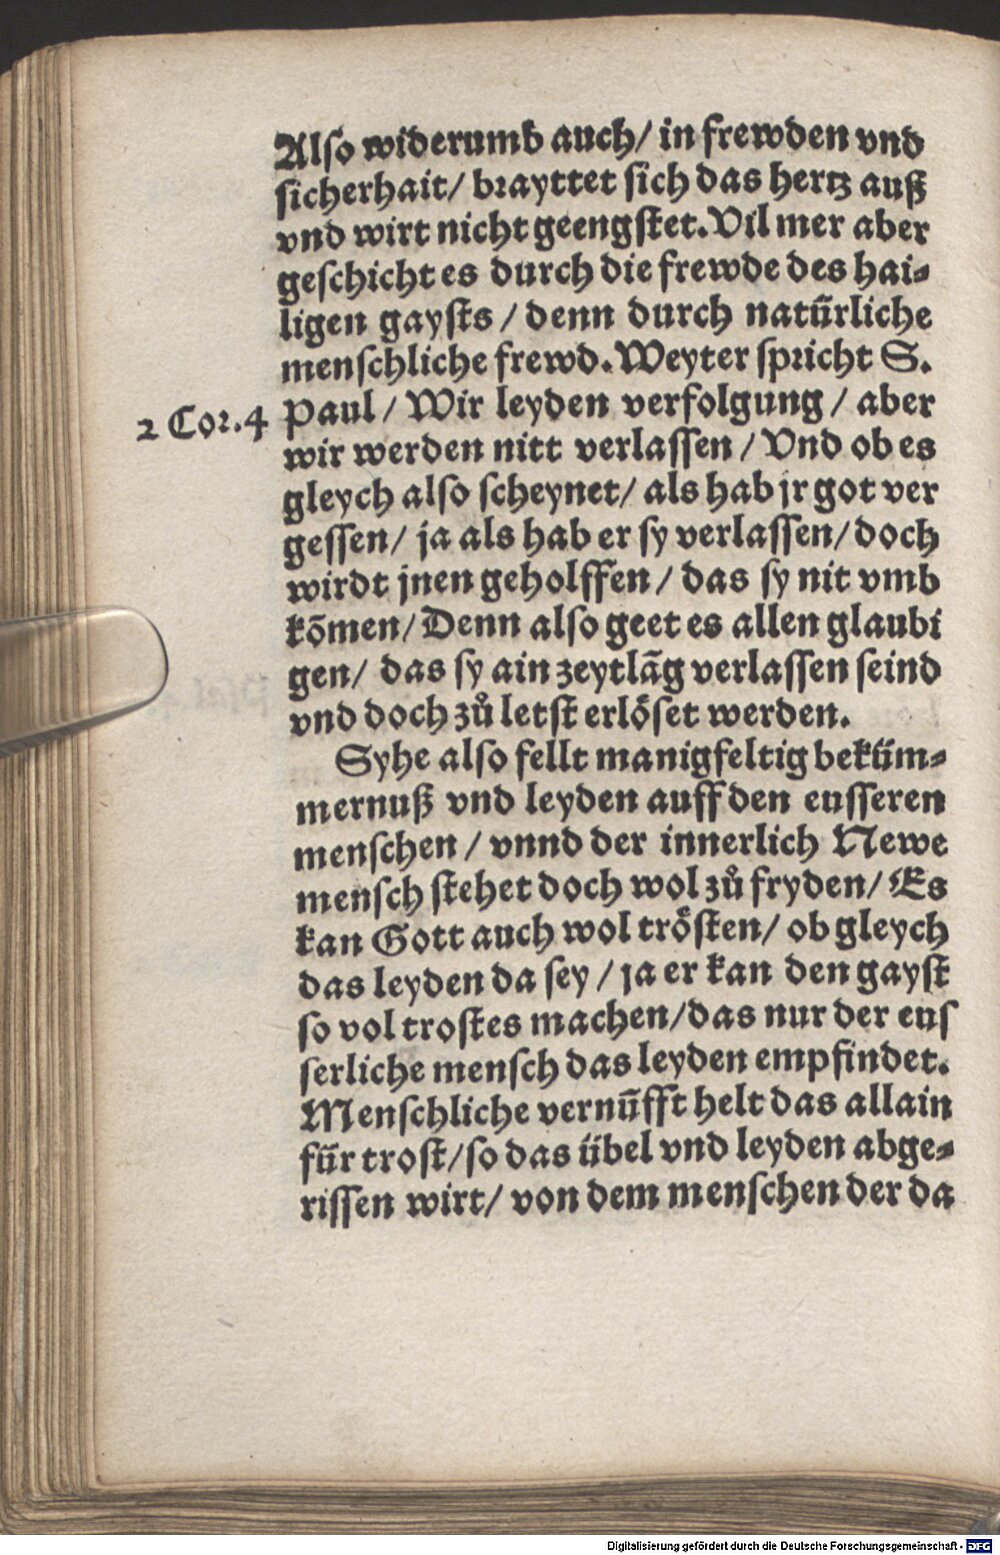 Also widerumb auch/ in frewden vnd
sicherhait/ brayttet sich das hertz auß
vnd wirt nicht geengstet. Vil mer aber
geschicht es durch die frewde des hai⸗
ligen gaysts / denn durch natürliche
menschliche frewd. Weyter spricht S.
2 Cor. 4 Paul / Wir leyden verfolgung / aber
wir werden nitt verlassen / Vnd ob es
gleych also scheynet/ als hab jr got ver
gessen/ ja als hab er sy verlassen/ doch
wirdt jnen geholffen / das sy nit vmb
kõmen/ Denn also geet es allen glaubi
gen/ das sy ain zeytlãg verlassen seind
vnd doch zů letst erlöset werden.
Syhe also fellt manigfeltig beküm⸗
mernuß vnd leyden auff den eusseren
menschen / vnnd der innerlich Newe
mensch stehet doch wol zů fryden/ Es
kan Gott auch wol trösten/ ob gleych
das leyden da sey / ja er kan den gayst
so vol trostes machen/ das nur der eus
serliche mensch das leyden empfindet.
Menschliche vernũfft helt das allain
für trost/ so das übel vnd leyden abge⸗
rissen wirt/ von dem menschen der da
Digitalisierung gefördert durch die Deutsche Forschungsgemeinschaft - DFG